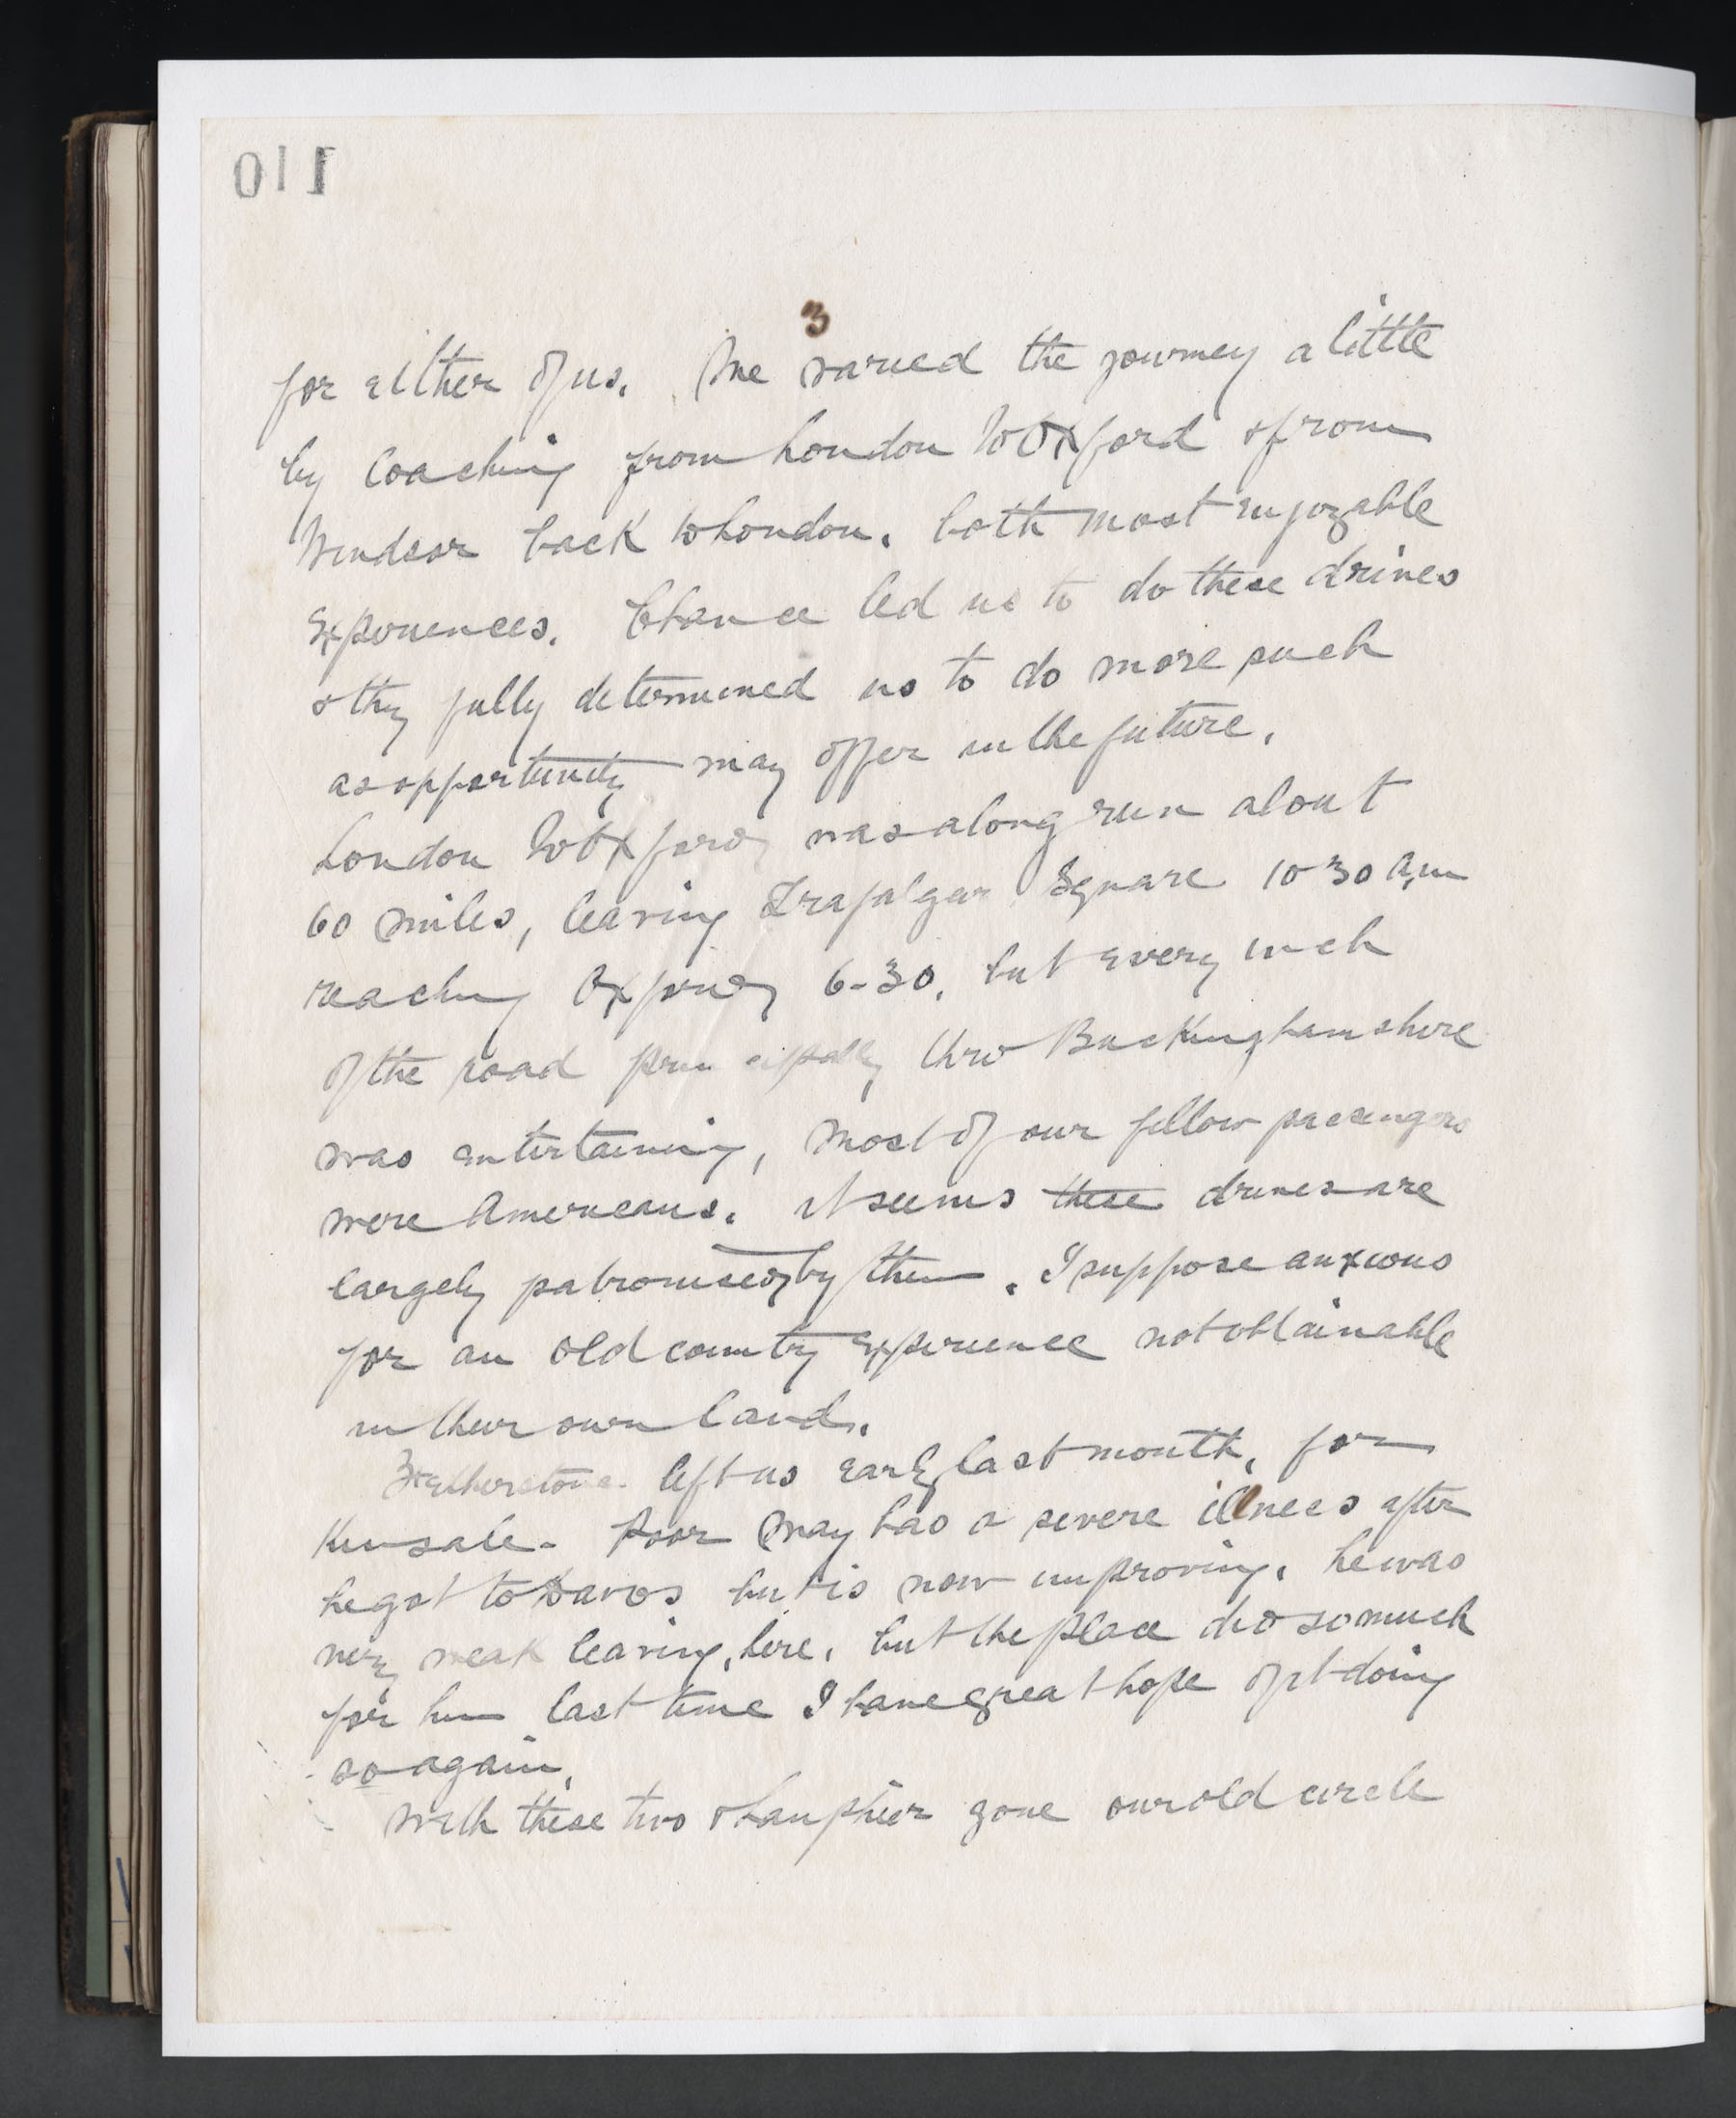 011
3
for either of us. We varied the journey a little
by Coaching from London to Oxford & from
Windsor back to London. both most enjoyable
Experiences. Chance led us to do these drives
& they fully determined us to do more such
as opportunity may offer in the future.
London to Oxford was a long run about
60 miles, leaving Trafalgar Square 10-30 a.m
reaching Oxford 6-30. but every inch
of the road principally thro Buckinghamshire
was entertaining, Most of our fellow passengers
were Americans. it seems these drives are
largely patronised by them. I suppose anxious
for an old country Experience not obtainable
in their own land.
Fetherstone left us early last month, for
Kinsale. Poor May had a severe illness after
he got to Davos but is now improving. he was
very weak leaving here. but the place did so much
for him last time I have great hope of it doing
so again.
With these two & gone our old circle